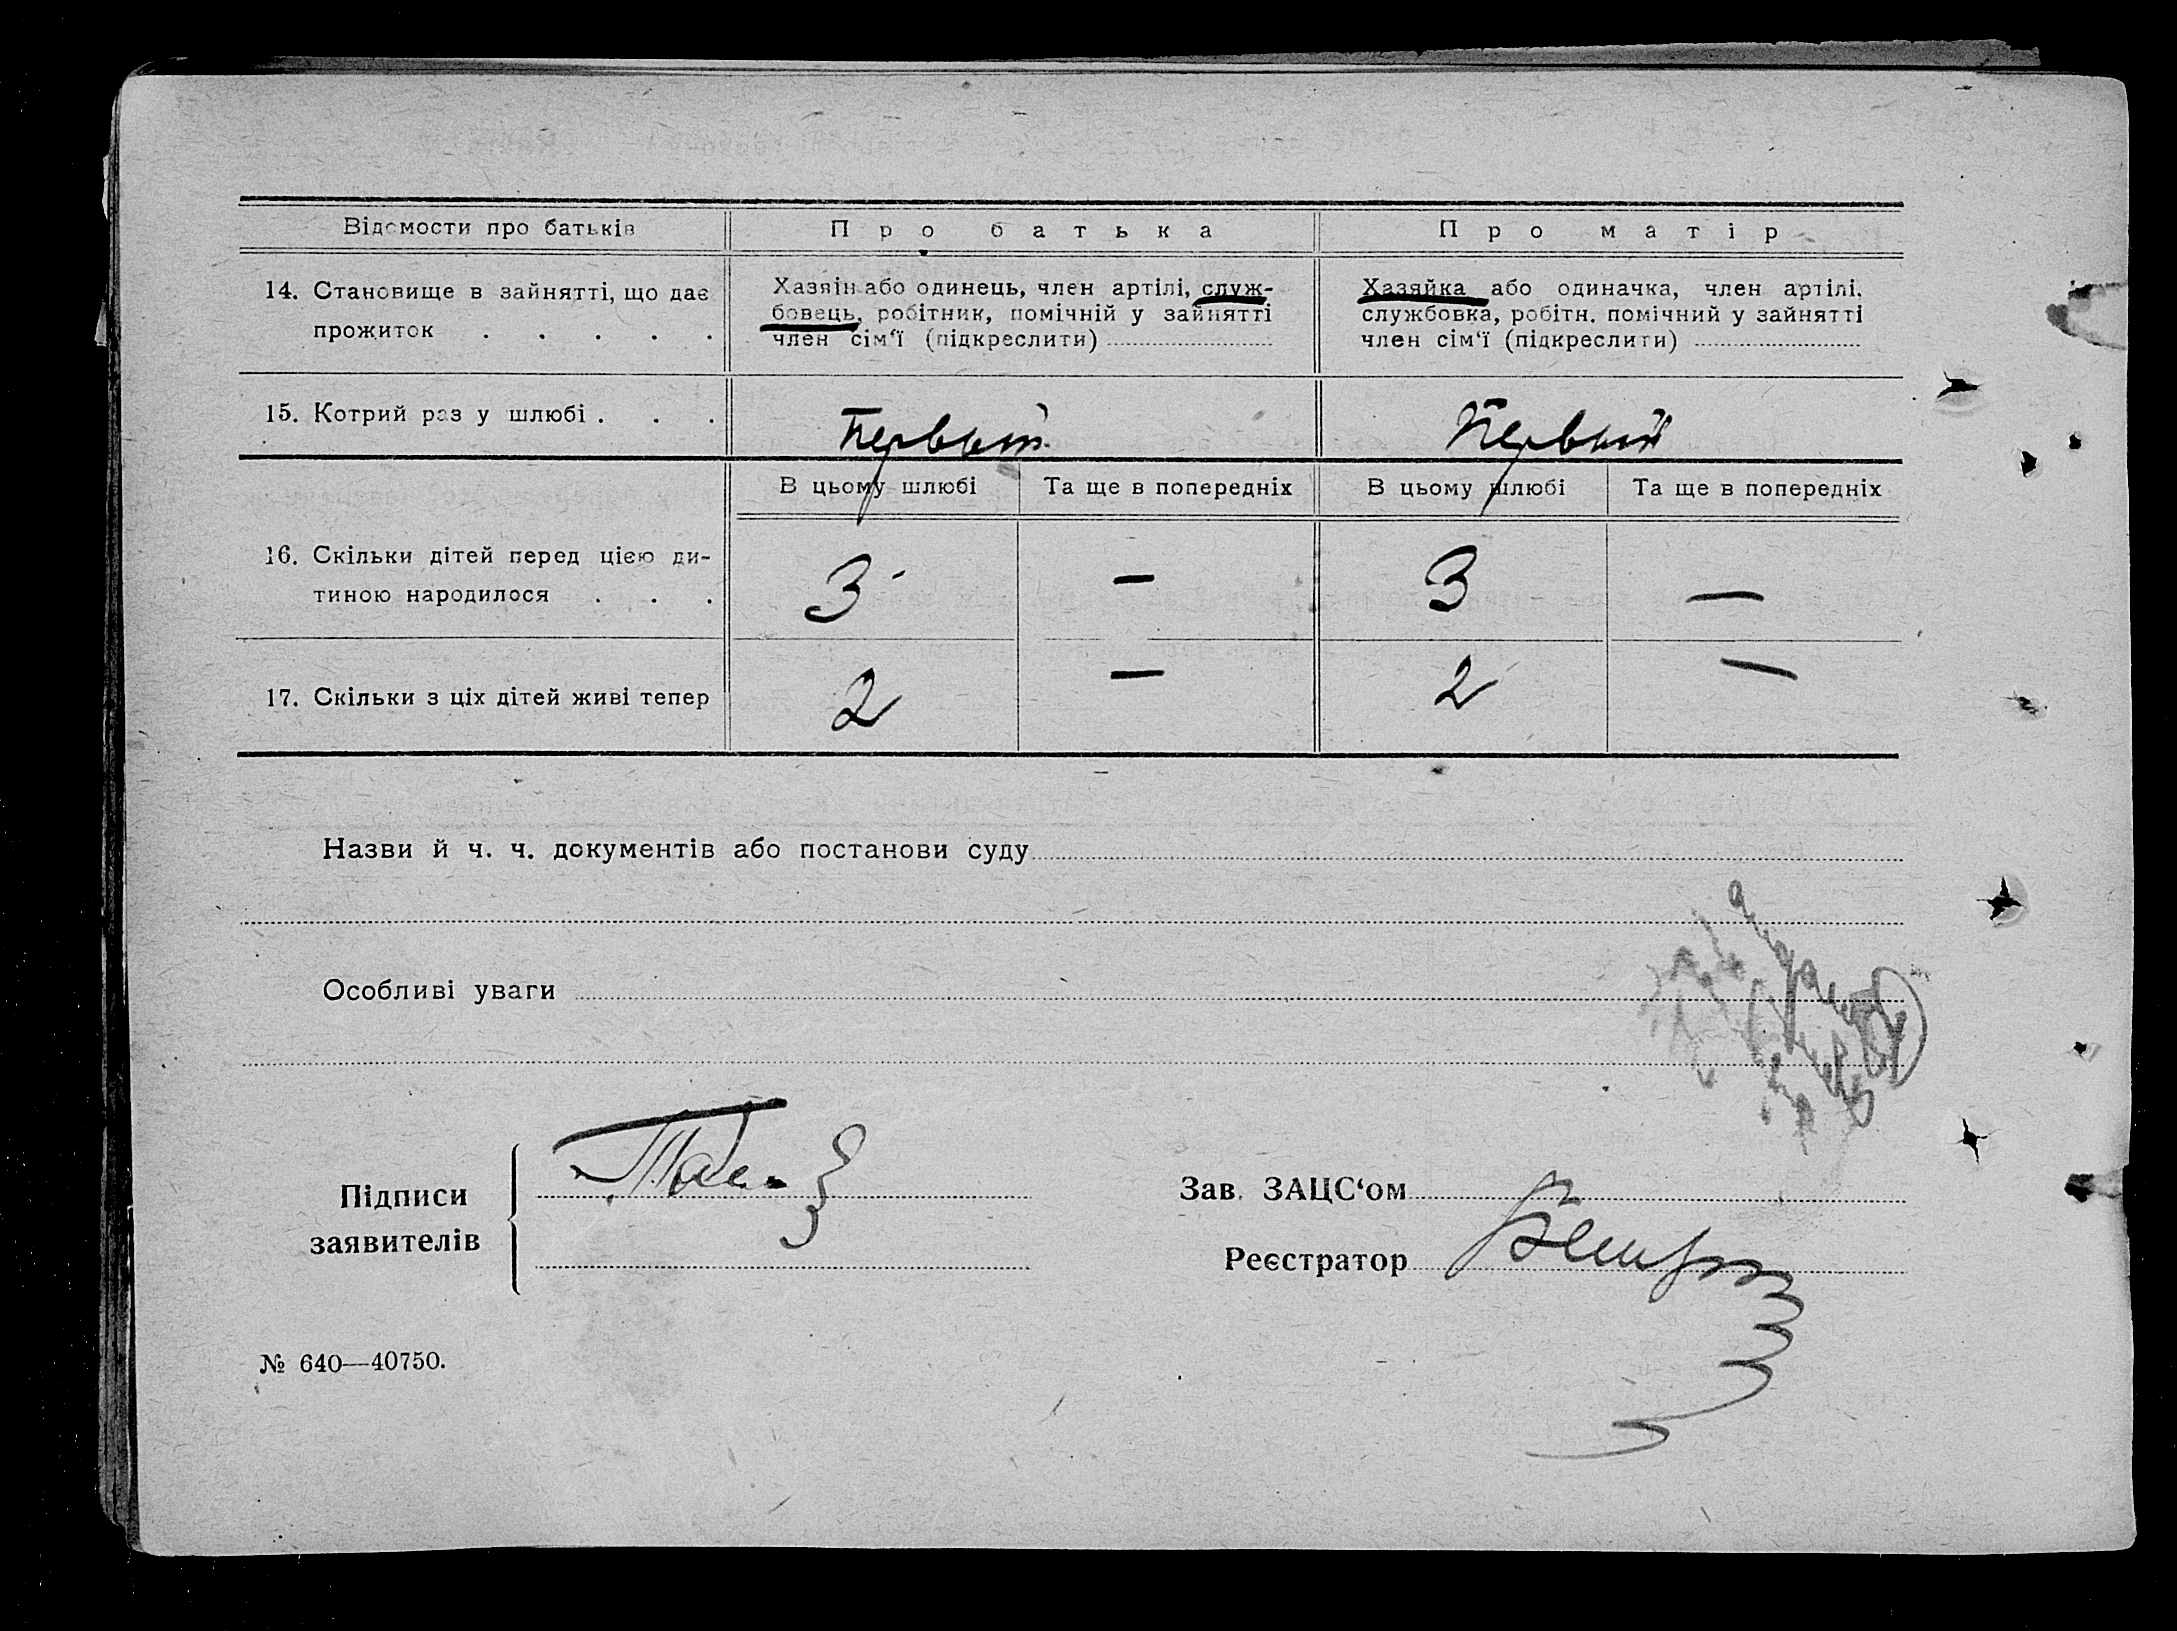 Відомости про батьків Про батька Про матір
14. Становище в зайнятті, що дає
прожиток . . . . .
Хазяїн або одинець, член артілі, служ-
бовець, робітник, помічній у зайнятті
член сім‘ї (підкреслити)
Хазяйка або одиначка, член артілі,
службовка, робітн. помічний у зайнятті
член сім‘ї (підкреслити)
15. Котрий раз у шлюбі . . . Первый Первый
В цьому шлюбі Та ще в попередніх В цьому шлюбі Та ще в попередніх
16. Скільки дітей перед цією ди-
тиною народилося . . .
3 — 3 —
17. Скільки з ціх дітей живі тепер 2 — 2 —
Назви й ч. ч. документів або постанови суду
Особливі уваги
Підписи
заявителів
Зав. ЗАЦС‘ом
Реєстратор
№ 640—40750.